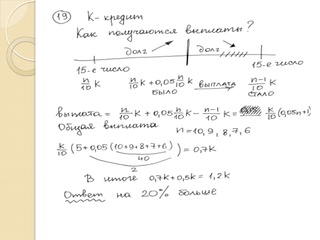 19 К - кредит
Как получаются выплаты?
долг долг
15-е число 15-е число
n/10 К n/10 К + 0,05 n/10 К выплата n-1/10 К
было стало
выплата = n/10 К + 0,05 n/10 К - n-1/10 К = К/10 (0,05n+1)
Общая выплата n = 10, 9, 8, 7, 6
К/10 (5 + 0,05 (10+9+8+7+6)) = 0,7К
40
2
В итоге 0,7К + 0,5К = 1,2К
Ответ на 20% больше